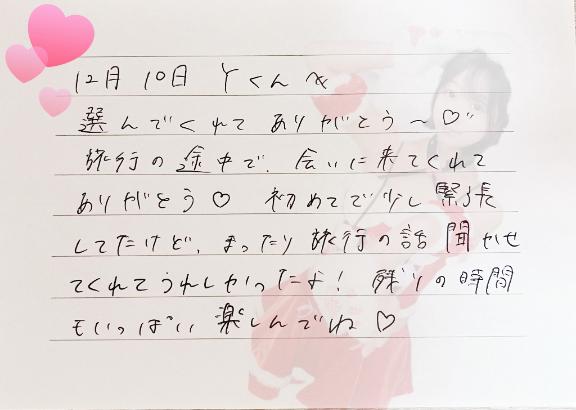 12月 10日 Yくんへ
選んでくれて ありがとう〜♡"
旅行の途中で、会いに来てくれて
ありがとう♡ 初めてで少し緊張
してたけど、まったり旅行の話聞かせ
てくれてうれしかったよ! 残りの時間
もいっぱい楽しんでね♡